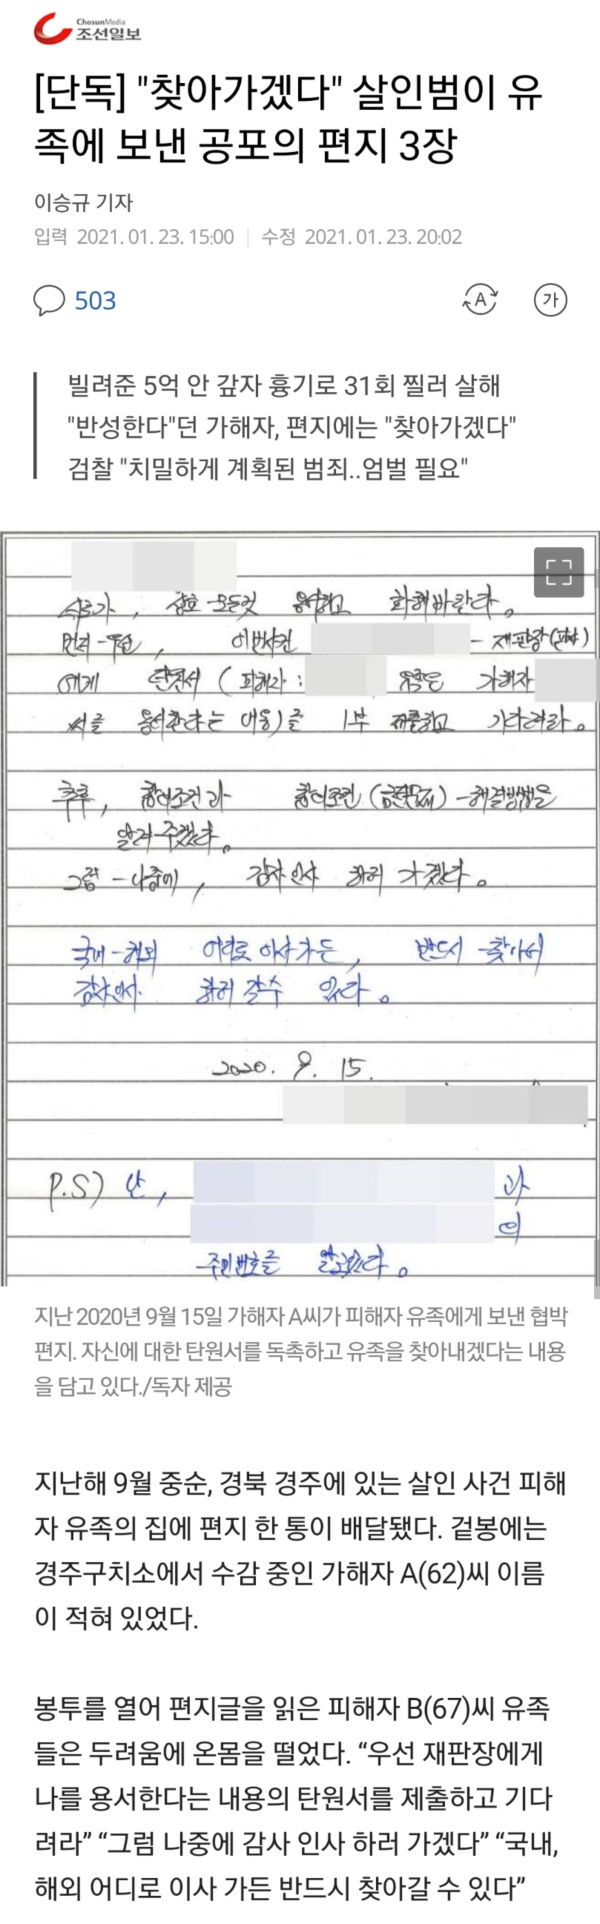 ChosunMedia
조선일보
[단독] "찾아가겠다" 살인범이 유
족에 보낸 공포의 편지 3장
이승규 기자
입력 2021. 01. 23. 15:00 | 수정 2021. 01. 23. 20:02
503
A
가
빌려준 5억 안 갚자 흉기로 31회 찔러 살해
"반성한다"던 가해자, 편지에는 "찾아가겠다"
검찰 "치밀하게 계획된 범죄..엄벌 필요"
상호 모든것 용서하고 화해바란다.
먼저 우선, 이번사건 - 재판장(판사)
에게 탄원서 (피해자: 유족은 가해자
씨를 용서한다는 내용)를 1부 제출하고 기다려라.
추후, 합의조건과 합의조건(금전문제) 해결방법을
알려주겠다.
그럼 나중에, 감사인사 하러 가겠다.
국내-해외 어디로 이사가든, 반드시 찾아서
감사인사 하러 갈수 있다.
2020. 9. 15.
P.S) 난, 과
의
주민번호를 알고있다.
지난 2020년 9월 15일 가해자 A씨가 피해자 유족에게 보낸 협박
편지. 자신에 대한 탄원서를 독촉하고 유족을 찾아내겠다는 내용
을 담고 있다./독자 제공
지난해 9월 중순, 경북 경주에 있는 살인 사건 피해
자 유족의 집에 편지 한 통이 배달됐다. 겉봉에는
경주구치소에서 수감 중인 가해자 A(62)씨 이름
이 적혀 있었다.
봉투를 열어 편지글을 읽은 피해자 B(67)씨 유족
들은 두려움에 온몸을 떨었다. “우선 재판장에게
나를 용서한다는 내용의 탄원서를 제출하고 기다
려라” “그럼 나중에 감사 인사 하러 가겠다” “국내,
해외 어디로 이사 가든 반드시 찾아갈 수 있다”